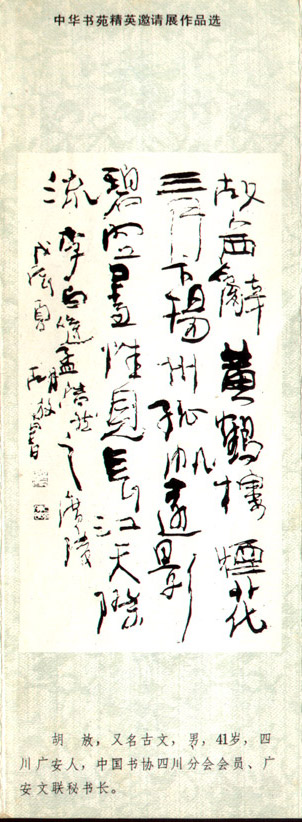 中华书苑精英邀请展作品选
故人西辭黃鶴樓煙花
三月下揚州孤帆遠影
碧空盡惟見長江天際
流 李白送孟浩然之廣陵
戊辰夏 胡放書
胡 放，又名古文，男，41岁，四
川广安人，中国书协四川分会会员、广
安文联秘书长。